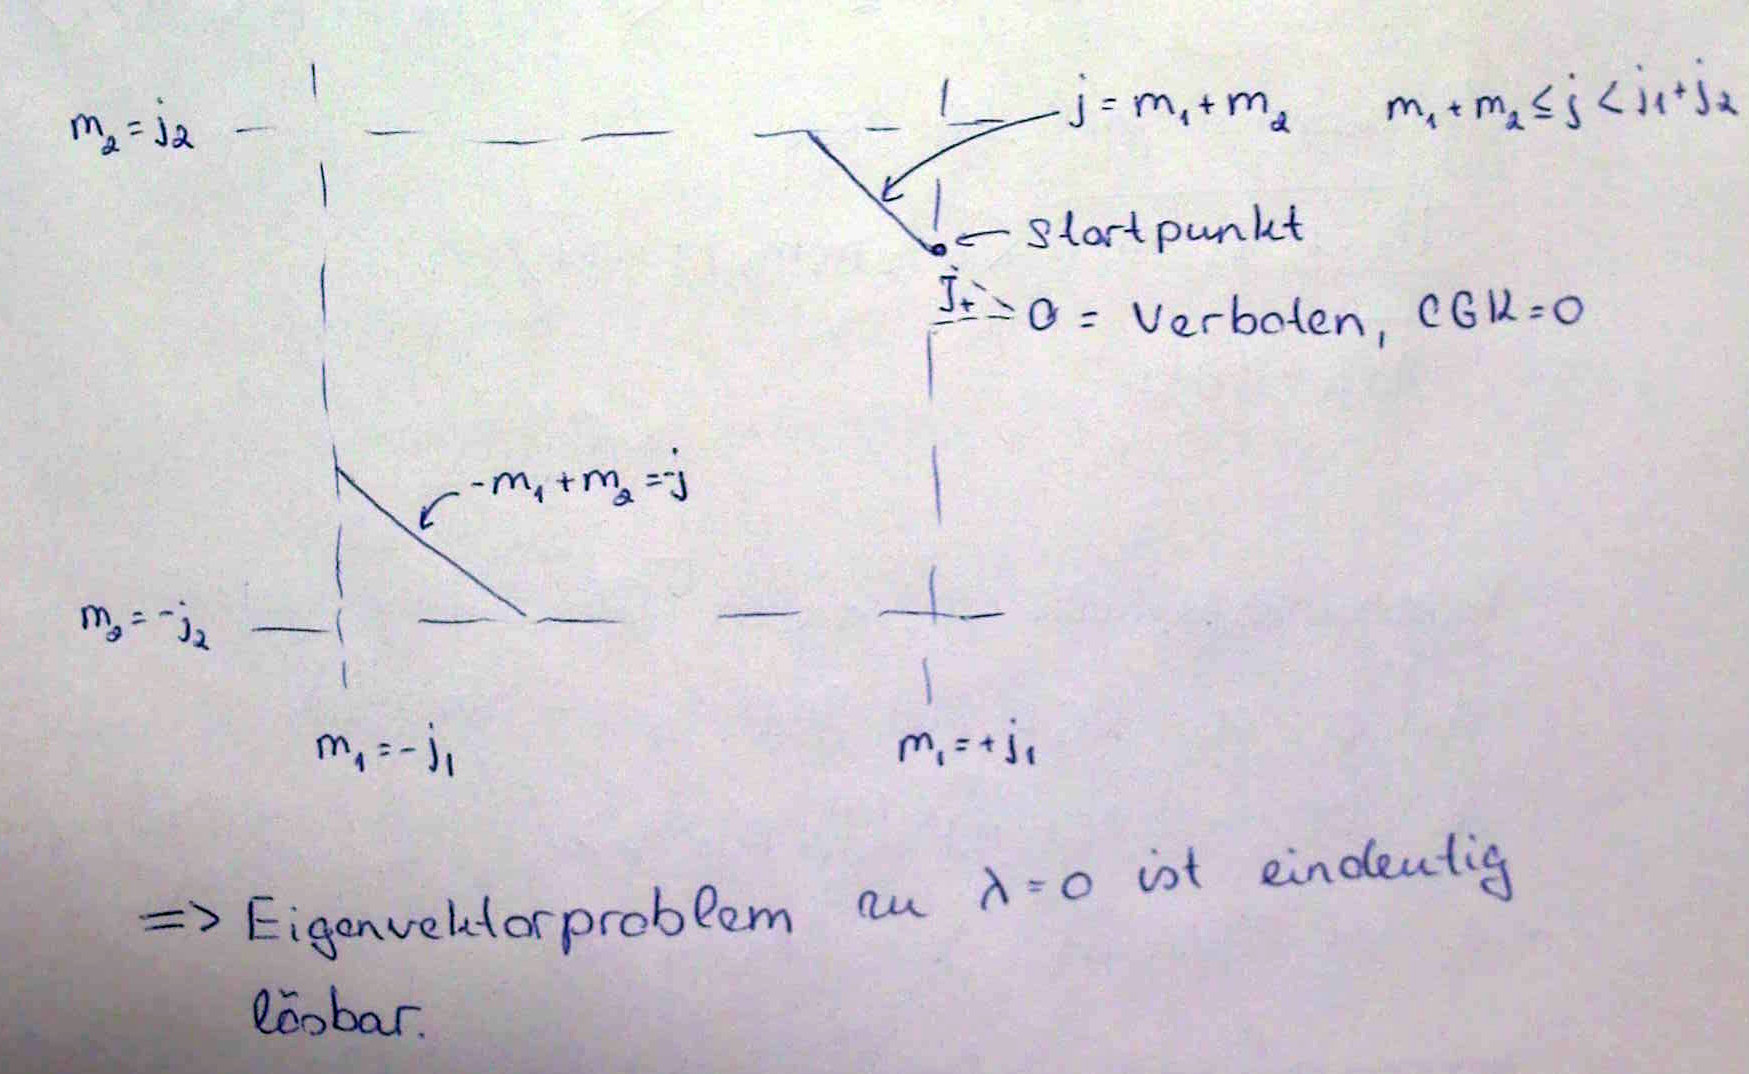 m₂ = j₂
j = m₁ + m₂
m₁ + m₂ ≤ j < j₁ + j₂
Startpunkt
J₊
0 = Verboten, CGK = 0
-m₁ + m₂ = -j
m₂ = -j₂
m₁ = -j₁
m₁ = +j₁
=> Eigenvektorproblem zu λ = 0 ist eindeutig
lösbar.